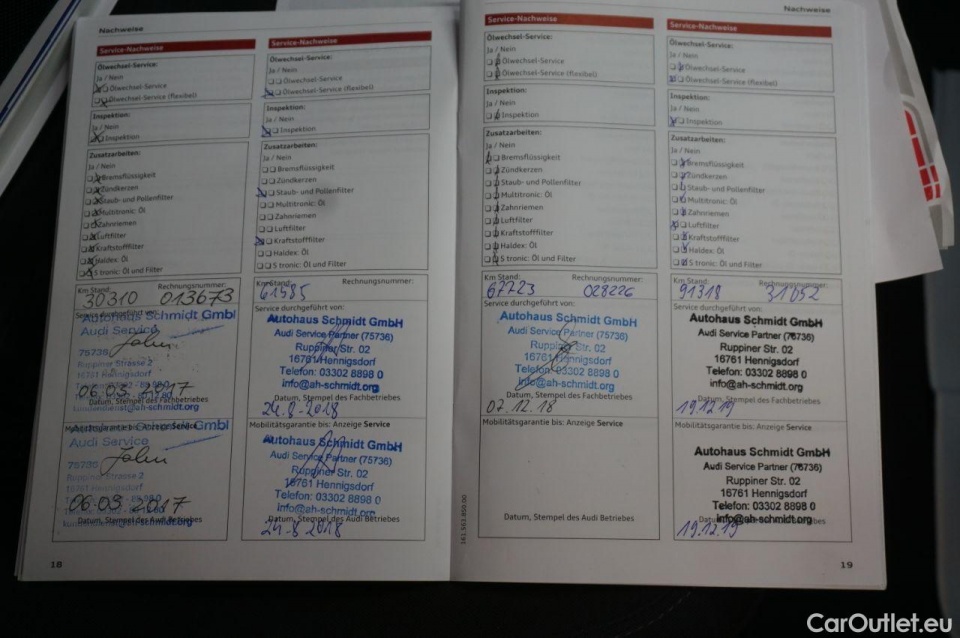 Nachweise
Service-Nachweise
Ölwechsel-Service:
Ja / Nein
Ölwechsel-Service
Ölwechsel-Service (flexibel)
Inspektion:
Ja / Nein
Inspektion
Zusatzarbeiten:
Ja / Nein
Bremsflüssigkeit
Zündkerzen
Staub- und Pollenfilter
Multitronic: Öl
Zahnriemen
Luftfilter
Kraftstofffilter
Haldex: Öl
S tronic: Öl und Filter
Km Stand: Rechnungsnummer:
30310 013673
Service durchgeführt von:
Autohaus Schmidt GmbH
Audi Service
75736
Ruppiner Strasse 2
16761 Hennigsdorf
06.03.2017
Datum, Stempel des Fachbetriebes
kundendienst@ah-schmidt.org
Mobilitätsgarantie bis: Anzeige Service
Audi Service
75736
Ruppiner Strasse 2
16761 Hennigsdorf
06.03.2017
Datum, Stempel des Audi Betriebes
18
Service-Nachweise
Ölwechsel-Service:
Ja / Nein
Ölwechsel-Service
Ölwechsel-Service (flexibel)
Inspektion:
Ja / Nein
Inspektion
Zusatzarbeiten:
Ja / Nein
Bremsflüssigkeit
Zündkerzen
Staub- und Pollenfilter
Multitronic: Öl
Zahnriemen
Luftfilter
Kraftstofffilter
Haldex: Öl
S tronic: Öl und Filter
Km Stand: Rechnungsnummer:
61585
Service durchgeführt von:
Autohaus Schmidt GmbH
Audi Service Partner (75736)
Ruppiner Str. 02
16761 Hennigsdorf
Telefon: 03302 8898 0
info@ah-schmidt.org
Datum, Stempel des Fachbetriebes
24.8.2018
Mobilitätsgarantie bis: Anzeige Service
Autohaus Schmidt GmbH
Audi Service Partner (75736)
Ruppiner Str. 02
16761 Hennigsdorf
Telefon: 03302 8898 0
info@ah-schmidt.org
Datum, Stempel des Audi Betriebes
24.8.2018
Nachweise
Service-Nachweise
Ölwechsel-Service:
Ja / Nein
Ölwechsel-Service
Ölwechsel-Service (flexibel)
Inspektion:
Ja / Nein
Inspektion
Zusatzarbeiten:
Ja / Nein
Bremsflüssigkeit
Zündkerzen
Staub- und Pollenfilter
Multitronic: Öl
Zahnriemen
Luftfilter
Kraftstofffilter
Haldex: Öl
S tronic: Öl und Filter
Km Stand: Rechnungsnummer:
67723 028226
Service durchgeführt von:
Autohaus Schmidt GmbH
Audi Service Partner (75736)
Ruppiner Str. 02
16761 Hennigsdorf
Telefon: 03302 8898 0
info@ah-schmidt.org
Datum, Stempel des Fachbetriebes
07.12.18
Mobilitätsgarantie bis: Anzeige Service
Datum, Stempel des Audi Betriebes
161.563.850.00
Service-Nachweise
Ölwechsel-Service:
Ja / Nein
Ölwechsel-Service
Ölwechsel-Service (flexibel)
Inspektion:
Ja / Nein
Inspektion
Zusatzarbeiten:
Ja / Nein
Bremsflüssigkeit
Zündkerzen
Staub- und Pollenfilter
Multitronic: Öl
Zahnriemen
Luftfilter
Kraftstofffilter
Haldex: Öl
S tronic: Öl und Filter
Km Stand: Rechnungsnummer:
91318 31052
Service durchgeführt von:
Autohaus Schmidt GmbH
Audi Service Partner (75736)
Ruppiner Str. 02
16761 Hennigsdorf
Telefon: 03302 8898 0
info@ah-schmidt.org
Datum, Stempel des Fachbetriebes
19.12.19
Mobilitätsgarantie bis: Anzeige Service
Autohaus Schmidt GmbH
Audi Service Partner (75736)
Ruppiner Str. 02
16761 Hennigsdorf
Telefon: 03302 8898 0
info@ah-schmidt.org
19.12.19
19
CarOutlet.eu